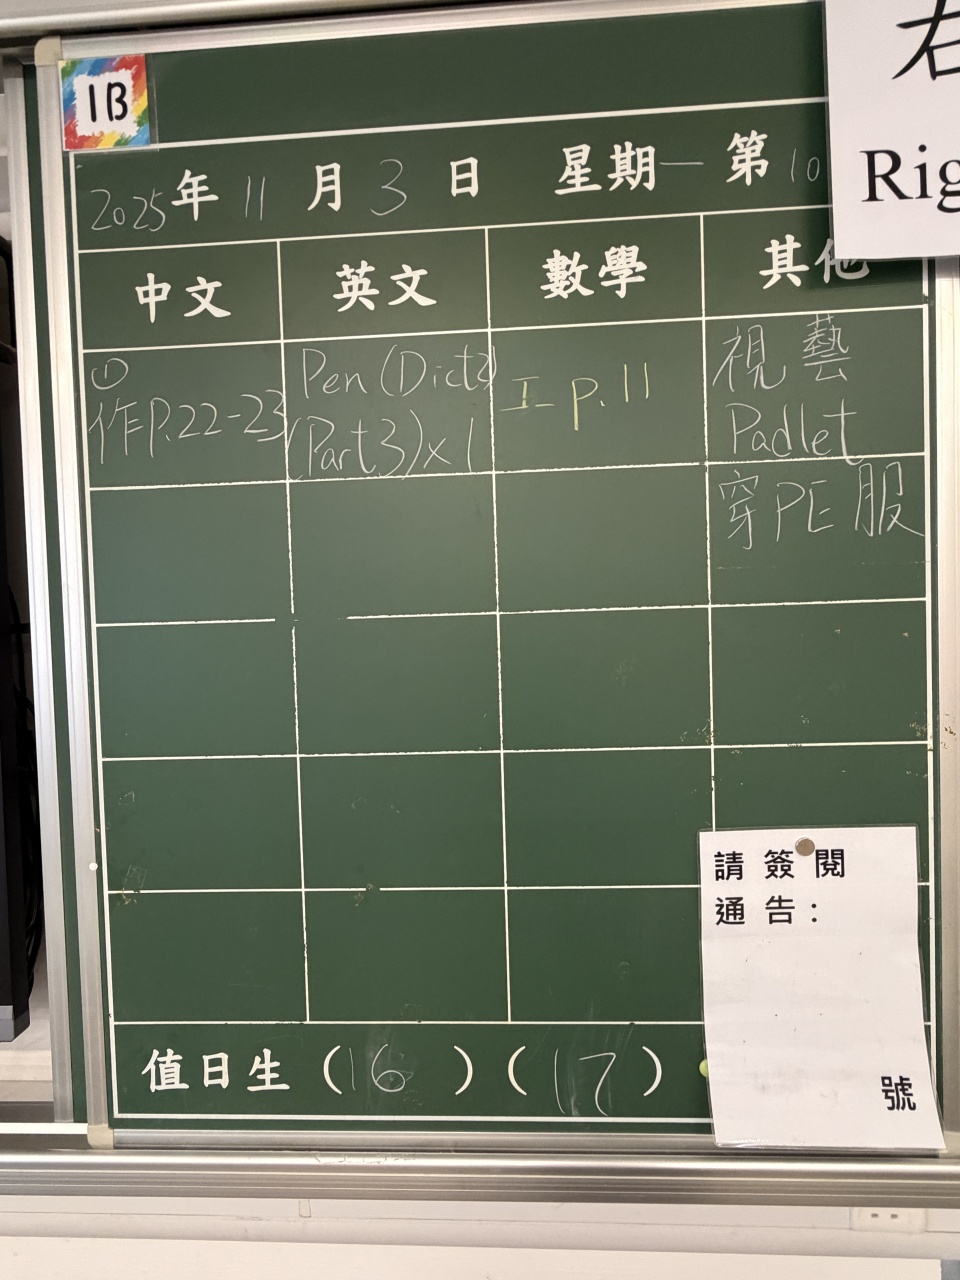 1B
右
Rig
2025年 11 月 3 日 星期一 第 10
中文 英文 數學 其他
①
作P.22-23
Pen (Dict3)
(Part3)×1
工 p.11
視藝
Padlet
穿PE服
請簽閱
通告:
號
值日生 (16) (17)